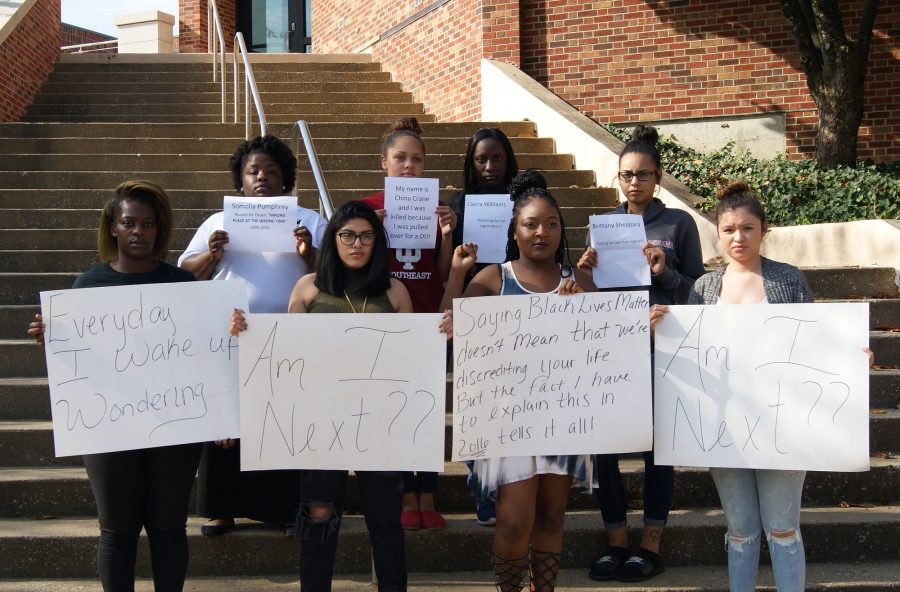 Somolia Pumphrey
Reason for Death: "WRONG
PLACE AT THE WRONG TIME"
My name is
China Crane
and I was
killed because
I was pulled
over for a DUI
Cierra Williams
Reaching for car
registration!
Brittany Sheppard
Failing to use turn signal!
SOUTHEAST
Everyday
I wake up
Wondering....
Am I
Next??
Saying Black Lives Matter
doesn't mean that we're
discrediting your life.
But the fact I have
to explain this in
2016 tells it all!
Am I
Next??